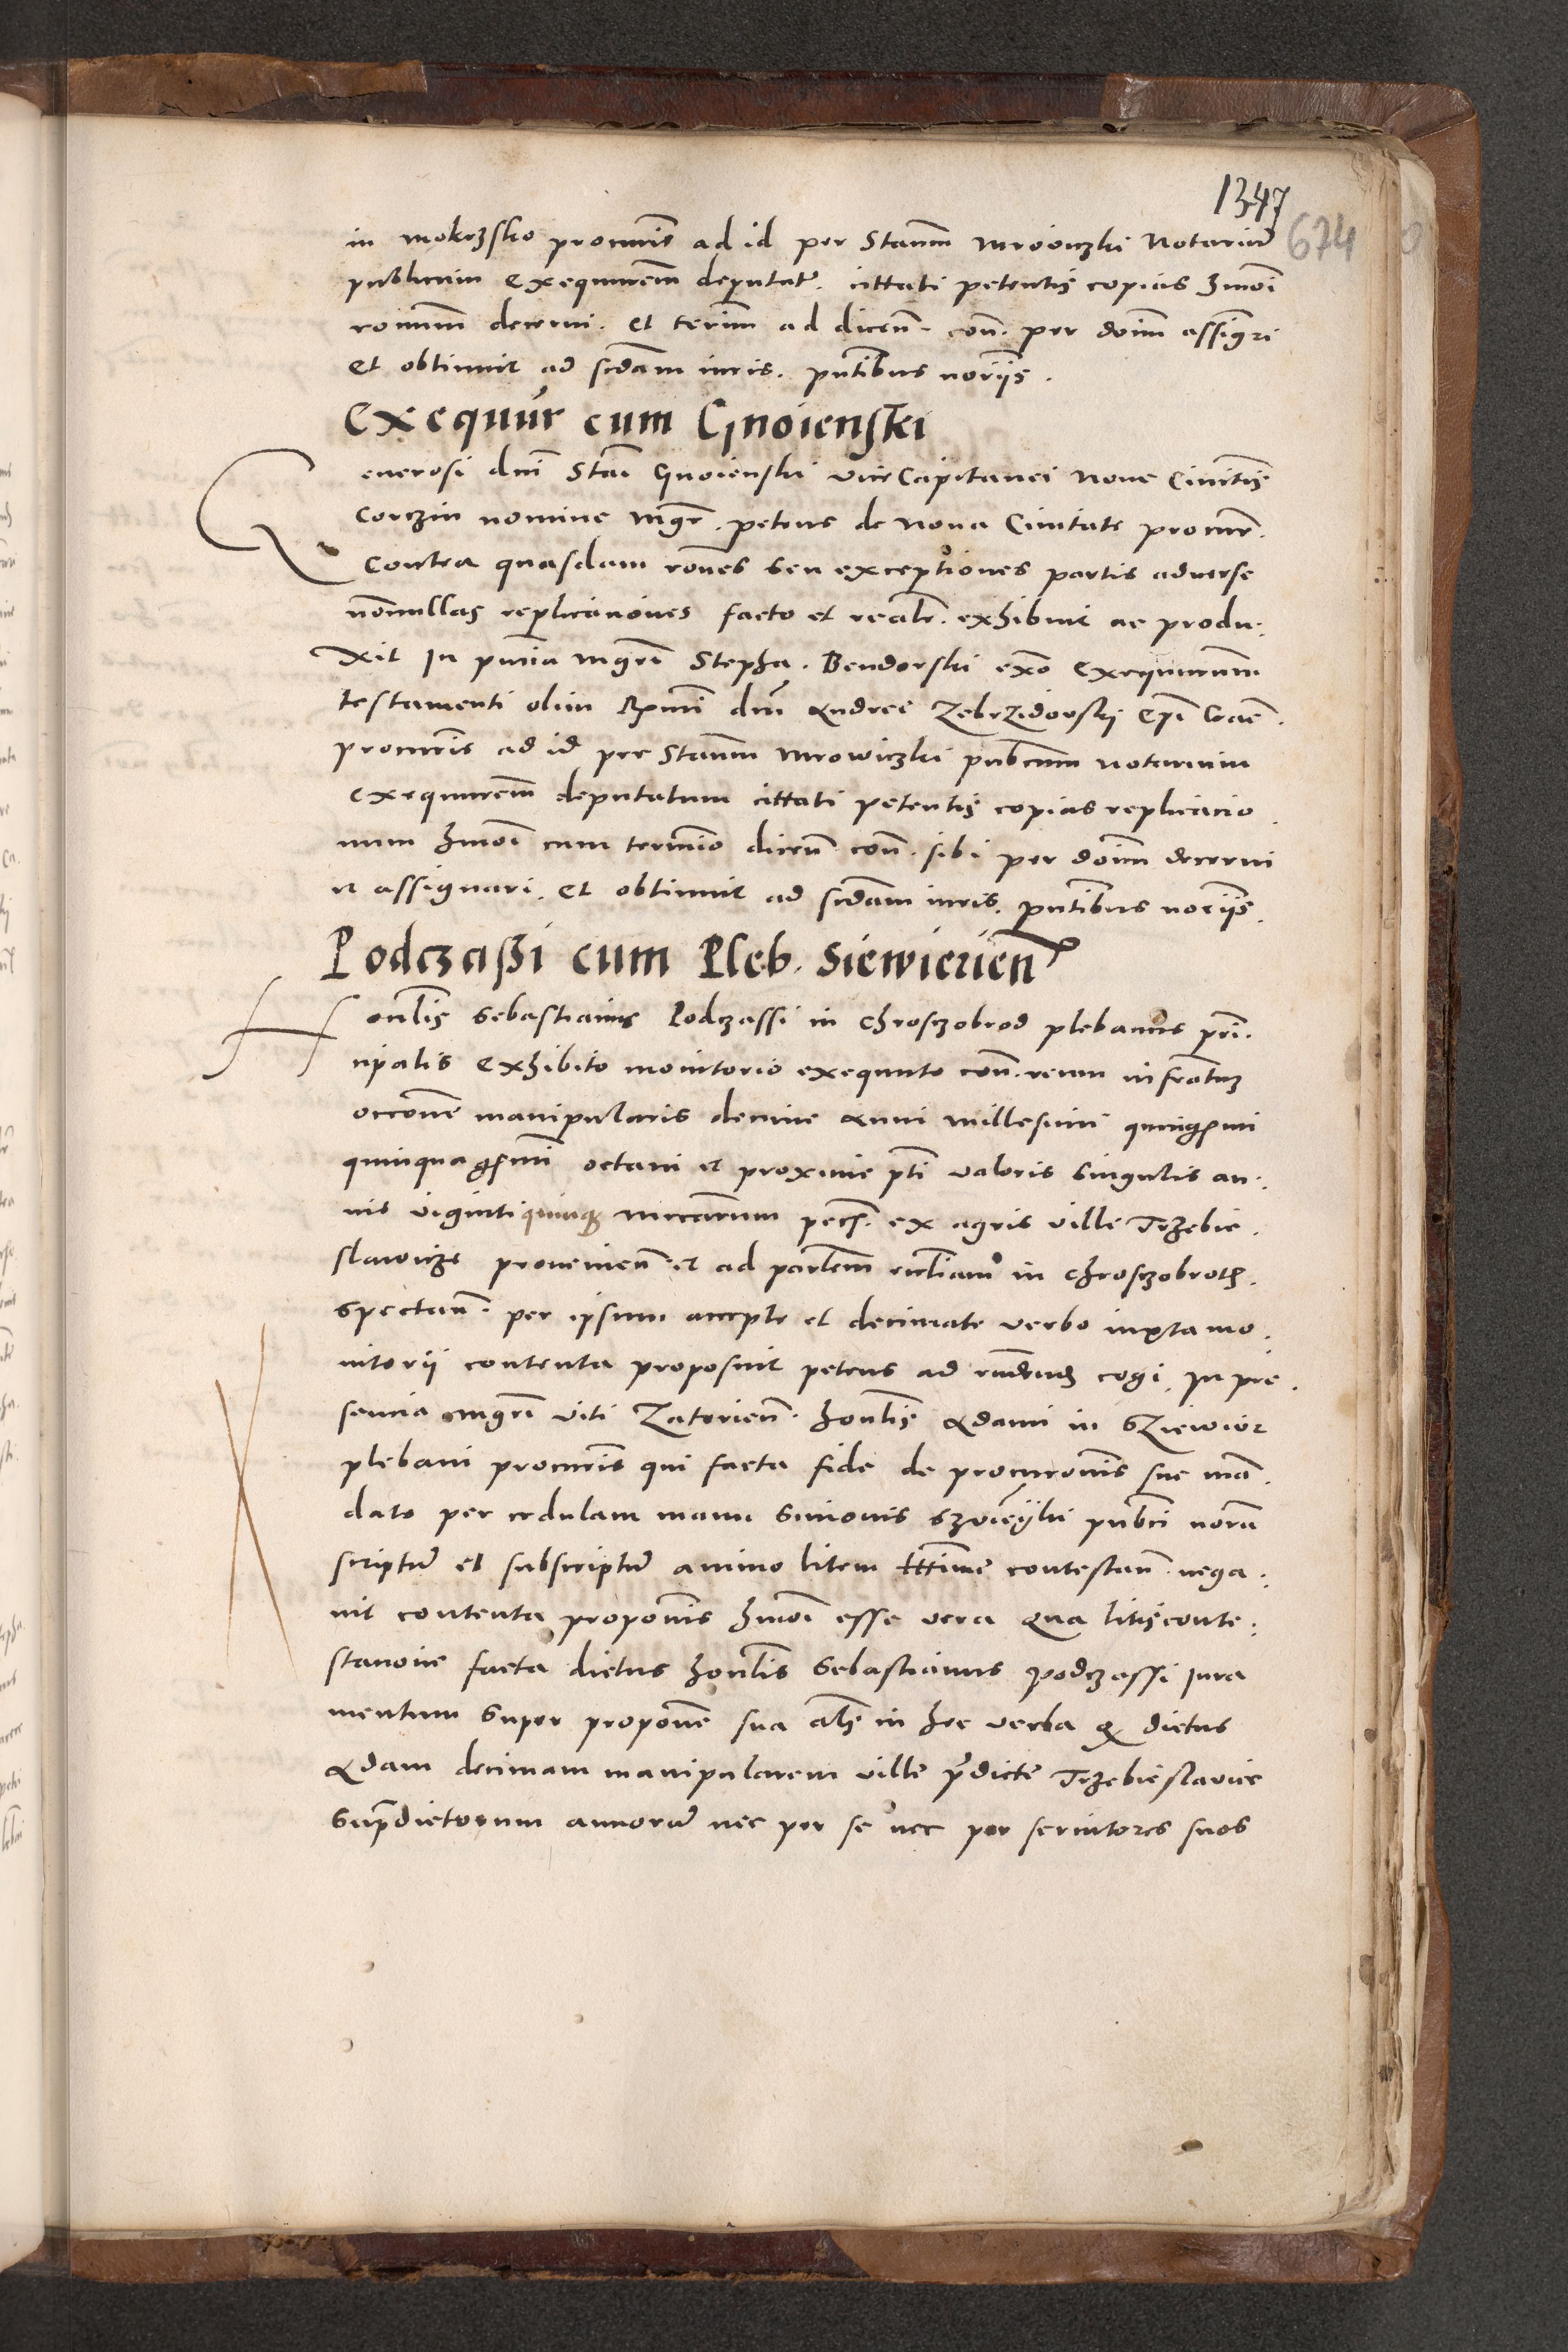 1347
674
in mokrzsko procuris ad id per Stanm mrowczki Notariu
publicum Exequutem deputatu. cittati petentis copias hmoi
ronumm decerni. et terim ad dicen. con. per doim assigri
et obtinuit ad scdam iuris. pntibus noriis.
Exequur cum Gnoienski
Generosi dni Stai Gnoienski vice Capitanei None Ciuitis
Corczin nomine mgr. petrus de Noua Ciuitate procur.
Contra quasdam rones seu exceptiones partis aduerse
nonnullas replicaciones facto et realr. exhibuit ac produ:
xit In pncia mgri Stepha. Bendorski exo Exequutorum
testamenti olim Rmi dni Andree Zebrzidowskj Epi Crac.
procuris ad id per Stanm Mrowiczki pubcum notarium
Exequutem deputatum cittati petentis copias replicacio
num hmoi cum termio dicen con. sibi per doim decerni
et assignari. et obtinuit ad scdam iuris. pntibus noriis.
Podczassi cum Pleb. Siewierien
Honlis Sebastianus Podczassi in Chrosczobrod plebanus prin.
cipalis Exhibito monitorio exequuto con. reum infratum
occone manipularis decime Anni millesimi quingmi
quinquagsimi octaui et proxime pti valoris singulis an:
nis viginti quinque mrcarum pech. ex agris ville Trzebie.
slawicze prouenien. et ad partem ecclliam in Chrosczobroth.
spectan. per ipsum accepte et decimate verbo iuxta mo.
nitorii contenta proposuit petens ad rndend cogi. In pre.
sencia mgri viti Zatorien. honlis Adami in Sziewior
plebani procuris qui facta fide de procuronis sue man.
dato per cedulam manu Simonis pubci nora
scriptu et subscriptu animo litem lttime contestan. nega.
uit contenta proponis hmoi esse vera Qua litisconte:
stacione facta dictus honlis Sebastianus Podczassi Iura
mentum super propone sua in hec verba q dictus
Adam decimam manipularem ville pdicte Trzebieslavice
supdictorum annoru nec per se nec per seruitores suos